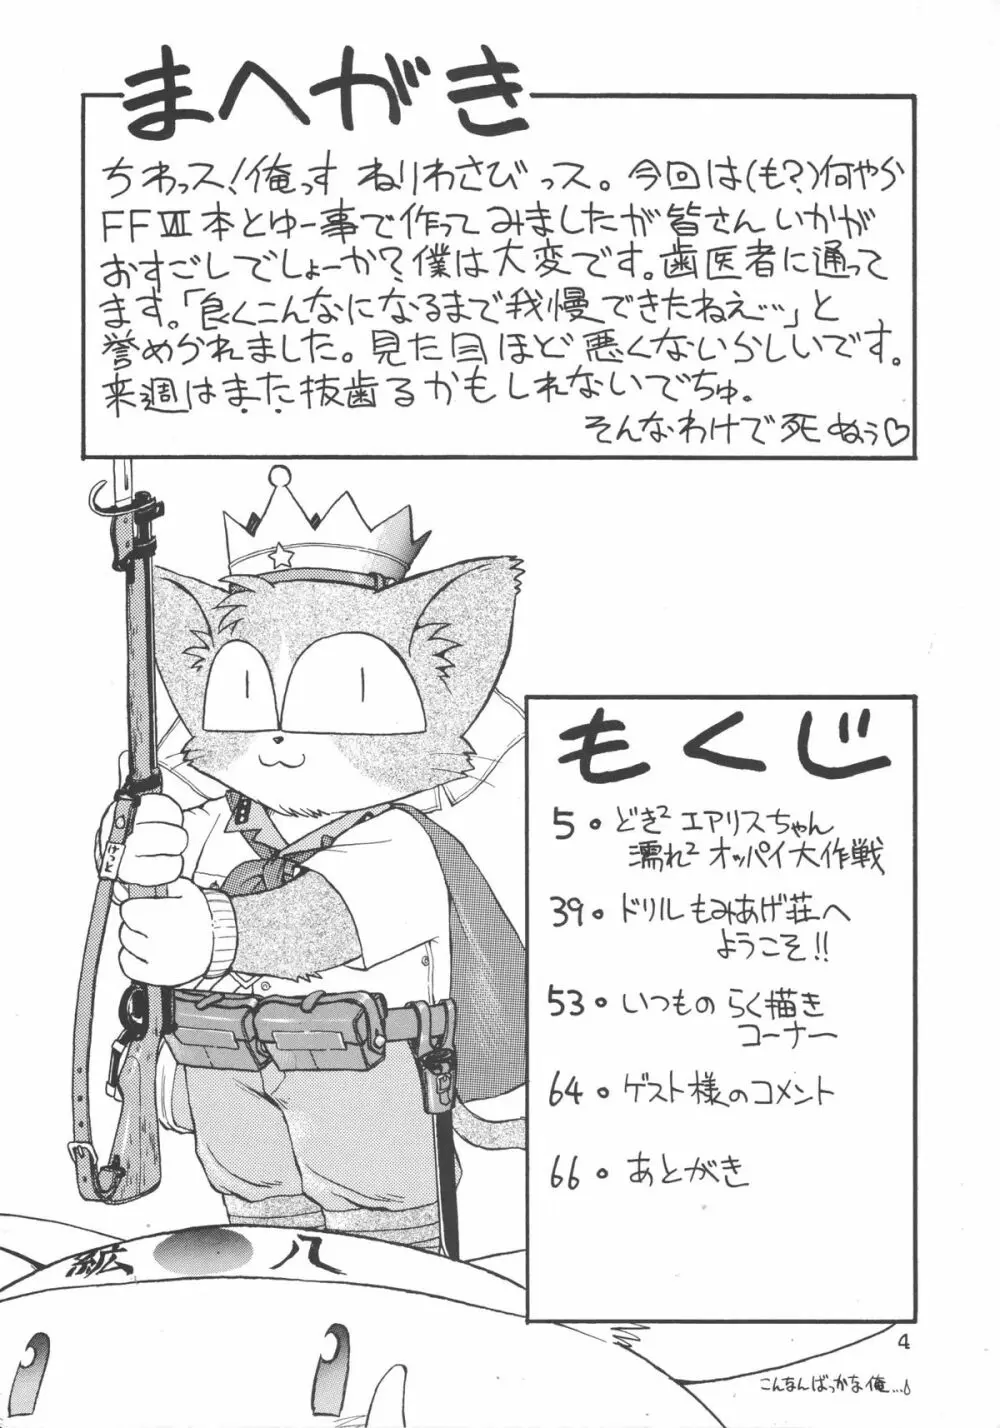 まへがき
ちわっス!俺っす ねりわさびっス。今回は(も?)何やら
FFⅦ本とゆー事で作ってみましたが皆さんいかが
おすごしでしょーか?僕は大変です。歯医者に通って
ます。「良くこんなになるまで我慢できたねえ…」と
誉められました。見た目ほど悪くないらしいです。
来週はまた抜歯るかもしれないでちゅ。
そんなわけで死ぬぅ♡
けっと
もくじ
5・どき² エアリスちゃん
濡れ² オッパイ大作戦
39・ドリルもみあげ荘へ
ようこそ!!
53・いつもの らく描き
コーナー
64・ゲスト様のコメント
66・あとがき
紘 八
4
こんなんばっかな俺…